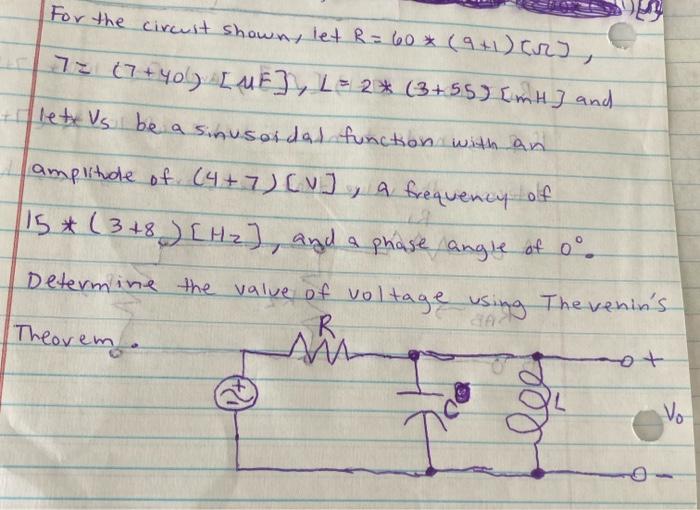 For the circuit shown, let R = 60 * (9+1) [Ω],
7 = (7+40) [μF], L = 2* (3+55) [mH] and
let Vs be a sinusoidal function with an
amplitude of (4+7) [V], a frequency of
15 * (3+8) [Hz], and a phase angle of 0°.
Determine the value of voltage using Thevenin's
Theorem.
R
+
C
L
Vo
-